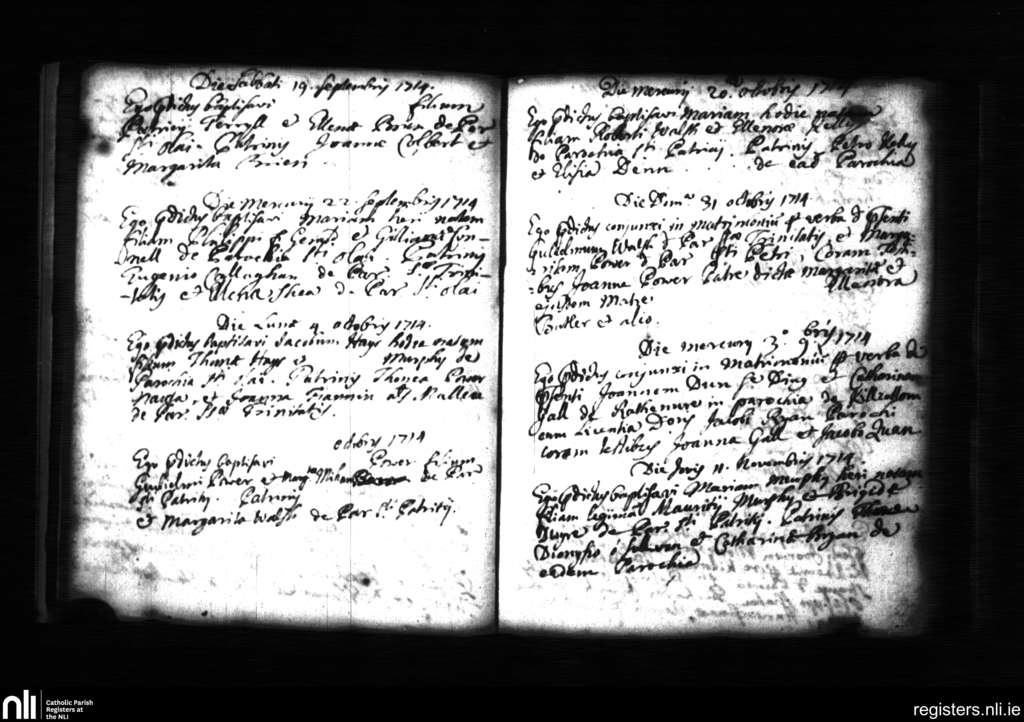 Die Sabbati 19. Septembris 1714.
Ego pdictus baptisavi filium
Patricij Terryll et Ellenæ Brien de Par
Sti Olai. Patrinis Joanne Colbert et
Margarita Brien
Die Mercurij 22 Septembris 1714
Ego pdictus baptisavi Mariam heri natam
filiam Philippi et
de Parochia Sti Olai. Patrinis
Eugenio Callaghan de Par. Sæ Trini
-tatis et Shea de Par Sti Olai
Die Lunæ 4 octobris 1714.
Ego pdictus baptisavi Jacobum Hays hodie natum
filium Thomæ Hays et Murphy de
Parochia Sti Olai. Patrinis Thoma Power
et Joanna Fannin als Mullen
de Par. Stæ Trinitatis.
octobris 1714
Ego pdictus baptisavi Power filium
Gulielmi Power et de Par
Sti Patritij. Patrinis
et Margarita Walsh de Par Sti Patritij.
Die Mercurij 20. octobris 1714
Ego pdictus baptisavi Mariam hodie natam
filiam Roberti Walsh et Ellenoræ Kelly
de Parochia Sti Patricij. Patrinis Petro
et Elisia Denn de ead Parochia
Die Domæ 31 octobris 1714
Ego pdictus conjunxi in matrimoniũ p verba d psenti
Gulielmum Walsh d Par Stæ Trinitatis et Marga-
-ritam Power d Par Sti Petri, Coram
-bus Joanne Power Patre dictæ Margaritæ et
ejusdem Matre
Butler et alio.
Die Mercurij 3. 9bris 1714
Ego pdictus conjunxi in matrimoniũ p verba de
psenti Joannem Dun de Ding et Catharinam
Gall de in parochia de
cum Licentia Dons Jacobi Bryan Parochi
coram testibus Joanna Gall et Jacobo Quan
Die Jovis 11. Novembris 1714.
Ego pdictus baptisavi Mariam Murphy heri natam
filiam legimã Mauritij Murphy et Brigidæ
de Par. Sti Patritij. Patrinis
Dionysio o Sulivan et Catharina Bryan de
eadem Parochia
nli
Catholic Parish
Registers at
the NLI
registers.nli.ie